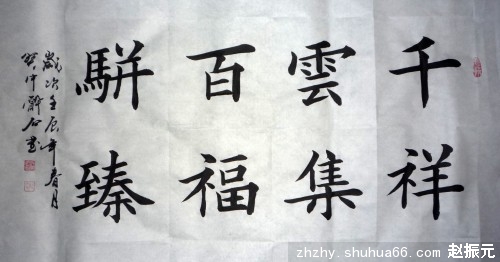 千祥
雲集
百福
駢臻
歲次壬辰年春月
石書
zhzhy.shuhua66.com 赵振元